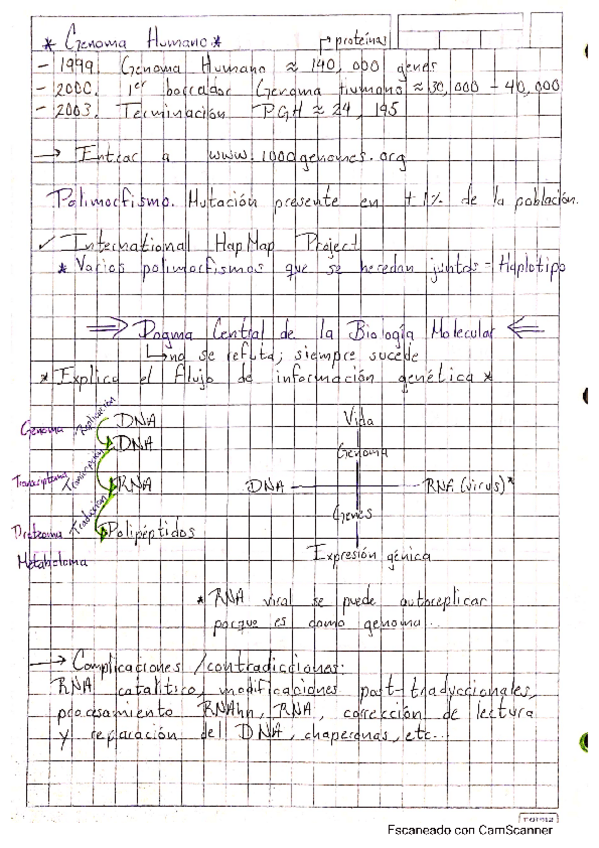 * Genoma Humano *
proteínas
- 1999. Genoma Humano ≈ 140,000 genes
- 2000. 1er borrador Genoma humano ≈ 30,000 - 40,000
- 2003. Terminación PGH ≈ 24,195
→ Entrar a www.1000genomes.org
Polimorfismo. Mutación presente en +1% de la población.
✓ International HapMap Project
* Varios polimorfismos que se heredan juntos - Haplotipo
⇒ Dogma Central de la Biología Molecular ⇐
↳ no se refuta; siempre sucede
* Explica el flujo de información genética *
Genoma
Replicación
DNA
DNA
Transcriptoma
Transcripción
RNA
Proteoma
Traducción
Polipéptidos
Metaboloma
Vida
Genoma
DNA — RNA (virus)*
Genes
Expresión génica
* RNA viral se puede autoreplicar
porque es como genoma..
→ Complicaciones /contradicciones:
RNA catalítico, modificaciones post-traduccionales,
procesamiento RNAhn, RNA, corrección de lectura
y reparación del DNA, chaperonas, etc...
Escaneado con CamScanner